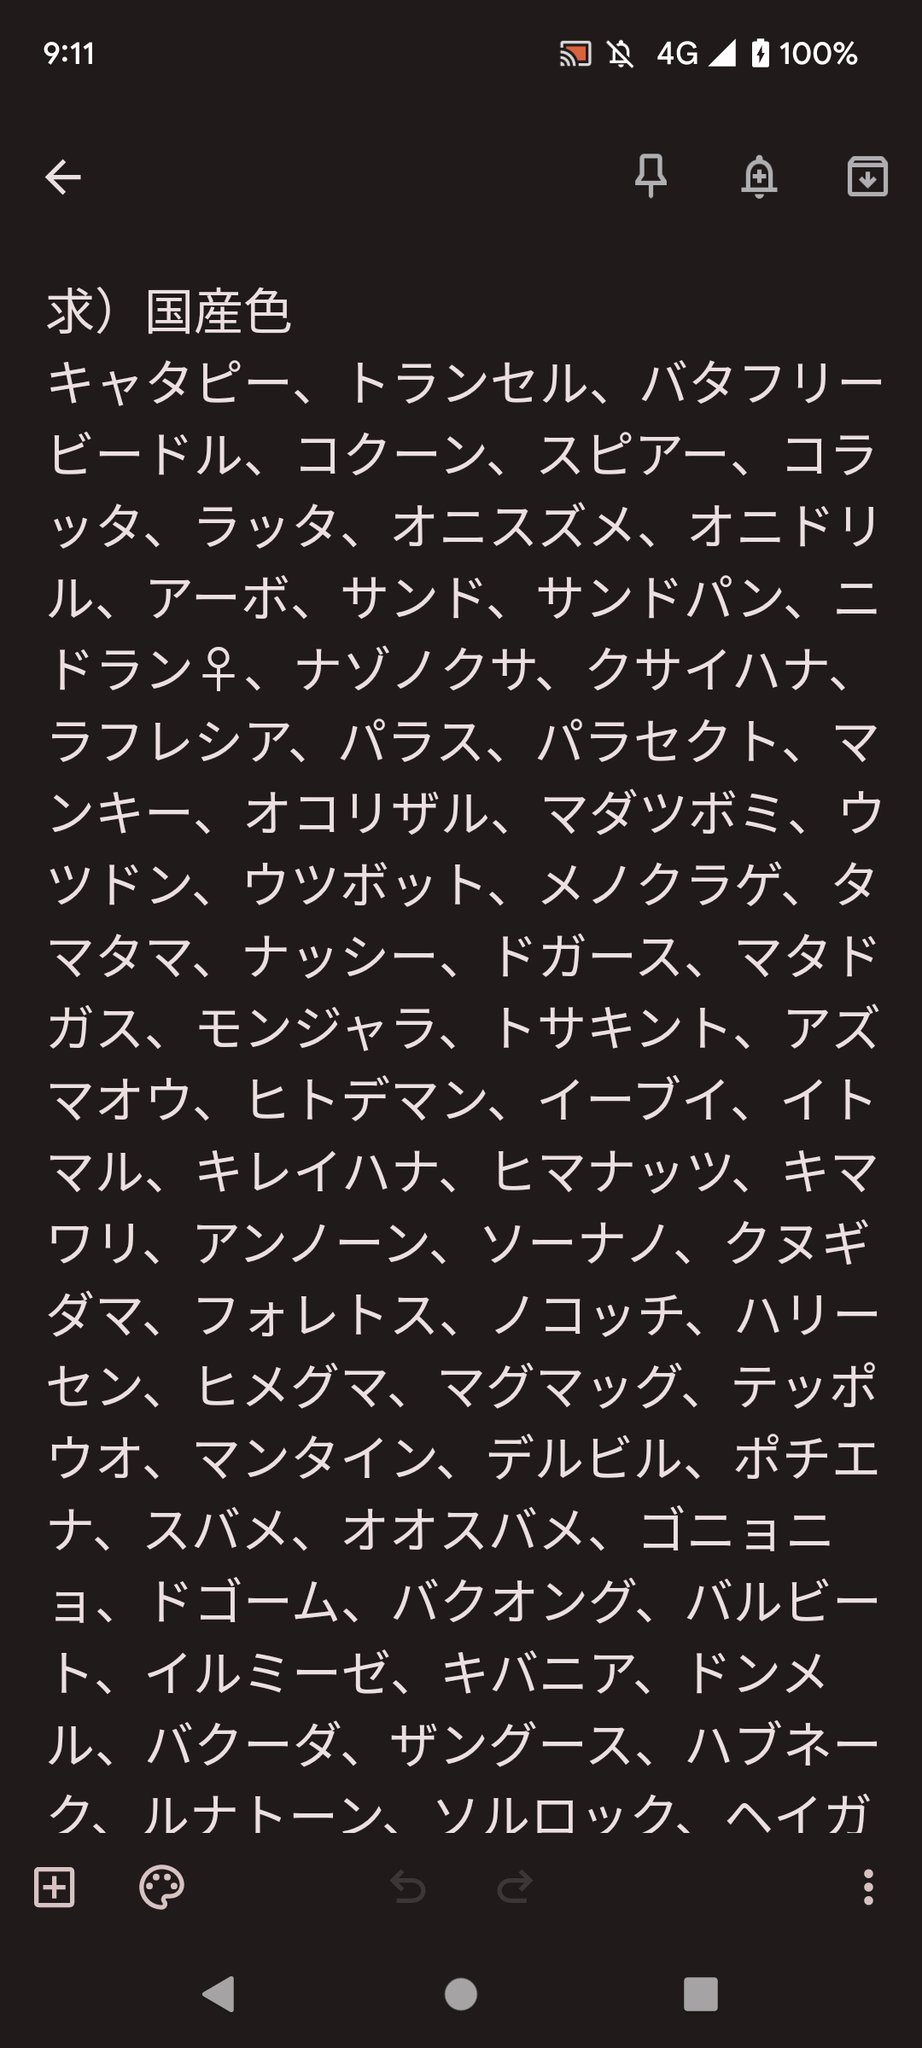 9:11
4G
100%
求）国産色
キャタピー、トランセル、バタフリー
ビードル、コクーン、スピアー、コラ
ッタ、ラッタ、オニスズメ、オニドリ
ル、アーボ、サンド、サンドパン、ニ
ドラン♀、ナゾノクサ、クサイハナ、
ラフレシア、パラス、パラセクト、マ
ンキー、オコリザル、マダツボミ、ウ
ツドン、ウツボット、メノクラゲ、タ
マタマ、ナッシー、ドガース、マタド
ガス、モンジャラ、トサキント、アズ
マオウ、ヒトデマン、イーブイ、イト
マル、キレイハナ、ヒマナッツ、キマ
ワリ、アンノーン、ソーナノ、クヌギ
ダマ、フォレトス、ノコッチ、ハリー
セン、ヒメグマ、マグマッグ、テッポ
ウオ、マンタイン、デルビル、ポチエ
ナ、スバメ、オオスバメ、ゴニョニ
ョ、ドゴーム、バクオング、バルビー
ト、イルミーゼ、キバニア、ドンメ
ル、バクーダ、ザングース、ハブネー
ク、ルナトーン、ソルロック、ヘイガ